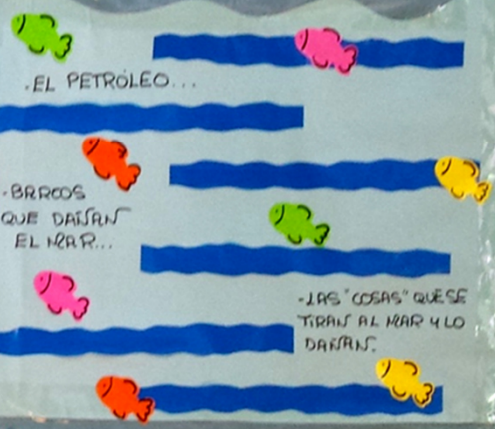 .EL PETRÓLEO...
-BARCOS
QUE DAÑAN
EL MAR...
-LAS "COSAS" QUE SE
TIRAN AL MAR Y LO
DAÑAN.